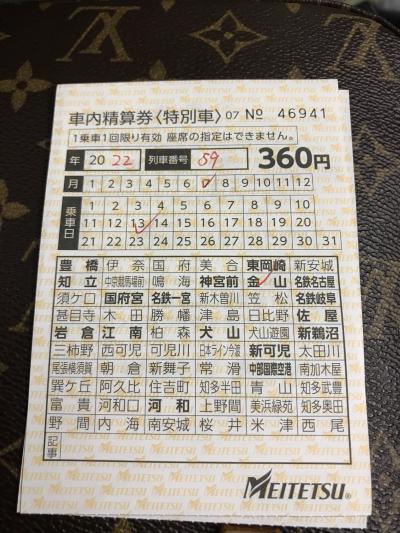 車内精算券〈特別車〉07 № 46941
1乗車1回限り有効 座席の指定はできません。
年 2022 列車番号 59 360円
月 1 2 3 4 5 6 7 8 9 10 11 12
乗車日 1 2 3 4 5 6 7 8 9 10
11 12 13 14 15 16 17 18 19 20
21 22 23 24 25 26 27 28 29 30 31
豊橋 伊奈 国府 美合 東岡崎 新安城
知立 中京競馬場前 鳴海 神宮前 金山 名鉄名古屋
須ケ口 国府宮 名鉄一宮 新木曽川 笠松 名鉄岐阜
甚目寺 木田 勝幡 津島 日比野 佐屋
岩倉 江南 柏森 犬山 犬山遊園 新鵜沼
三柿野 西可児 可児川 日本ライン今渡 新可児 太田川
尾張横須賀 朝倉 新舞子 常滑 中部国際空港 南加木屋
巽ケ丘 阿久比 住吉町 知多半田 青山 知多武豊
富貴 河和口 河和 上野間 美浜緑苑 知多奥田
野間 内海 南安城 桜井 米津 西尾
記事
MEITETSU®